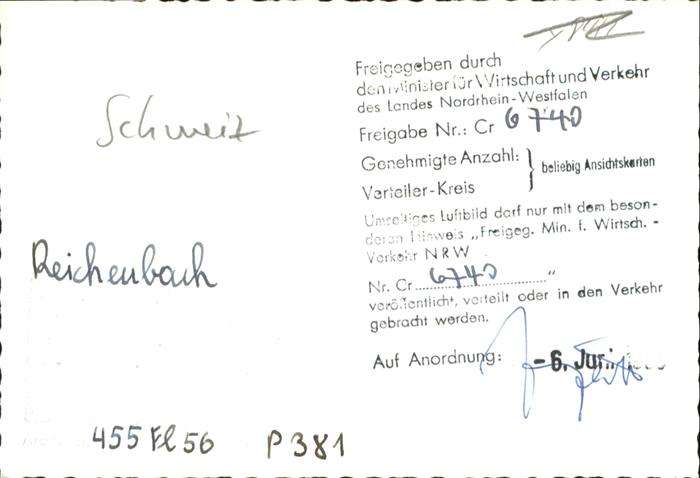 Schweiz
Reichenbach
455 Fl 56 P 381
Freigegeben durch
den Minister für Wirtschaft und Verkehr
des Landes Nordrhein-Westfalen
Freigabe Nr.: Cr 6740
Genehmigte Anzahl: } beliebig Ansichtskarten
Verteiler-Kreis
Umseitiges Luftbild darf nur mit dem beson-
deren Hinweis „Freigeg. Min. f. Wirtsch. -
Verkehr NRW
Nr. Cr 6740 "
veröffentlicht, verteilt oder in den Verkehr
gebracht werden.
Auf Anordnung: -6. Juni